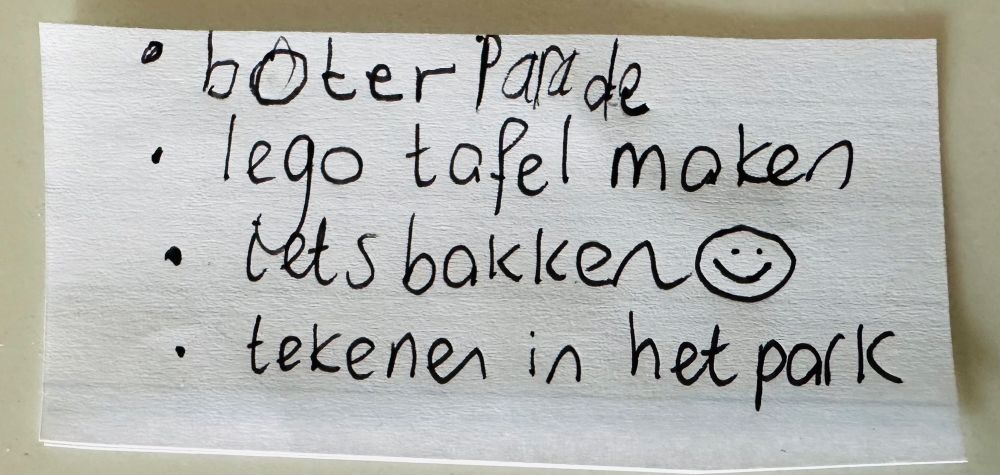 • boter Parade
• lego tafel maken
• iets bakken ☺
• tekenen in het park